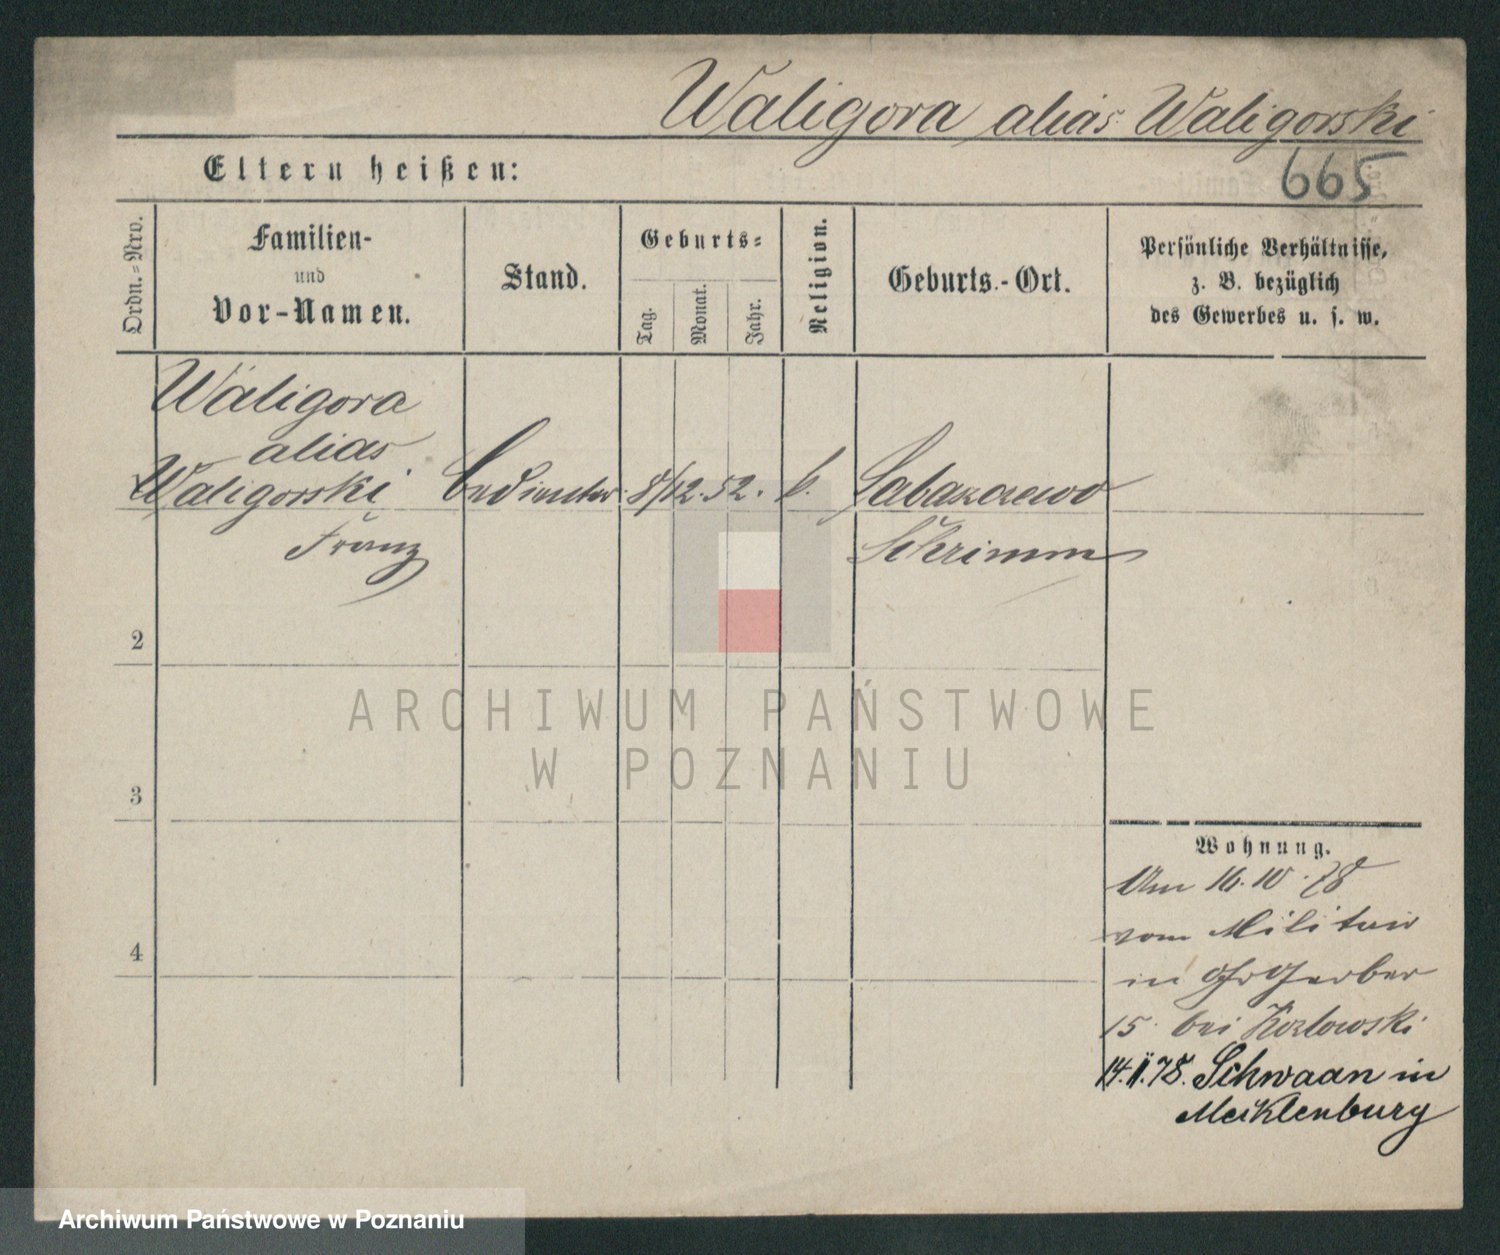 Waligora alias Waligorski
665
Eltern heißen:
Ordn.=Nro.
Familien-
und
Vor-Namen.
Stand.
Geburts=
Tag.
Monat.
Jahr.
Religion.
Geburts.-Ort.
Persönliche Verhältnisse,
z. B. bezüglich
des Gewerbes u. s. w.
Waligora
alias
Waligorski
Franz
Bedienter
8/12. 52.
k.
Schrimm
2
3
4
Wohnung.
Am 16. 10. 78
vom Militair
in Gr Gerber
15 bei Kozlowski
14.II.78. Schwaan in
Mecklenburg
ARCHIWUM PAŃSTWOWE
W POZNANIU
Archiwum Państwowe w Poznaniu